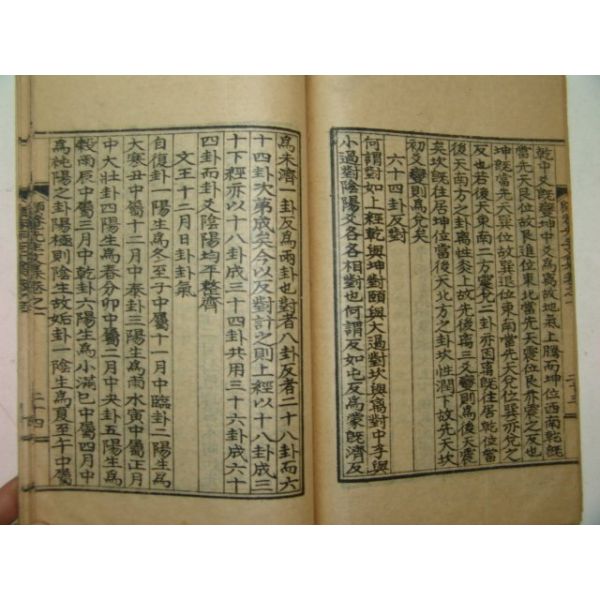 乾中爻旣變坤中爻爲离故地氣上騰而坤位西南乾旣
當先天艮位故艮退位東北當先天震位艮亦震之反也
坤旣當先天巽位故巽退位東南當先天兌位巽亦兌之
反也若後天東南二方震兌二卦亦因离旣住居乾位當
後天南方之卦离性炎上故先後离三爻變則爲後天震
矣坎旣住居坤位當後天北方之卦坎性潤下故先天坎
初爻變則爲兌矣
六十四卦反對
何謂對如上經乾與坤對頤與大過對坎與离對中孚與
小過對陰陽爻各各相對也何謂反如屯反爲蒙旣濟反
爲未濟一卦反爲兩卦也對者八卦反者二十八卦而六
十四卦次第成矣今以反對計之則上經以十八卦成三
十下經亦以十八卦成三十四卦共用三十六卦成六十
四卦而卦爻陰陽均平整齊
文王十二月日卦卦氣
自復卦一陽生爲冬至子中屬十一月中臨卦二陽生爲
大寒丑中屬十二月中泰卦三陽生爲雨水寅中屬正月
中大壯卦四陽生爲春分卯中屬二月中夬卦五陽生爲
穀雨辰中屬三月中乾卦六陽生爲小滿巳中屬四月中
爲純陽之卦陽極則陰生故姤卦一陰生爲夏至午中屬
二十四